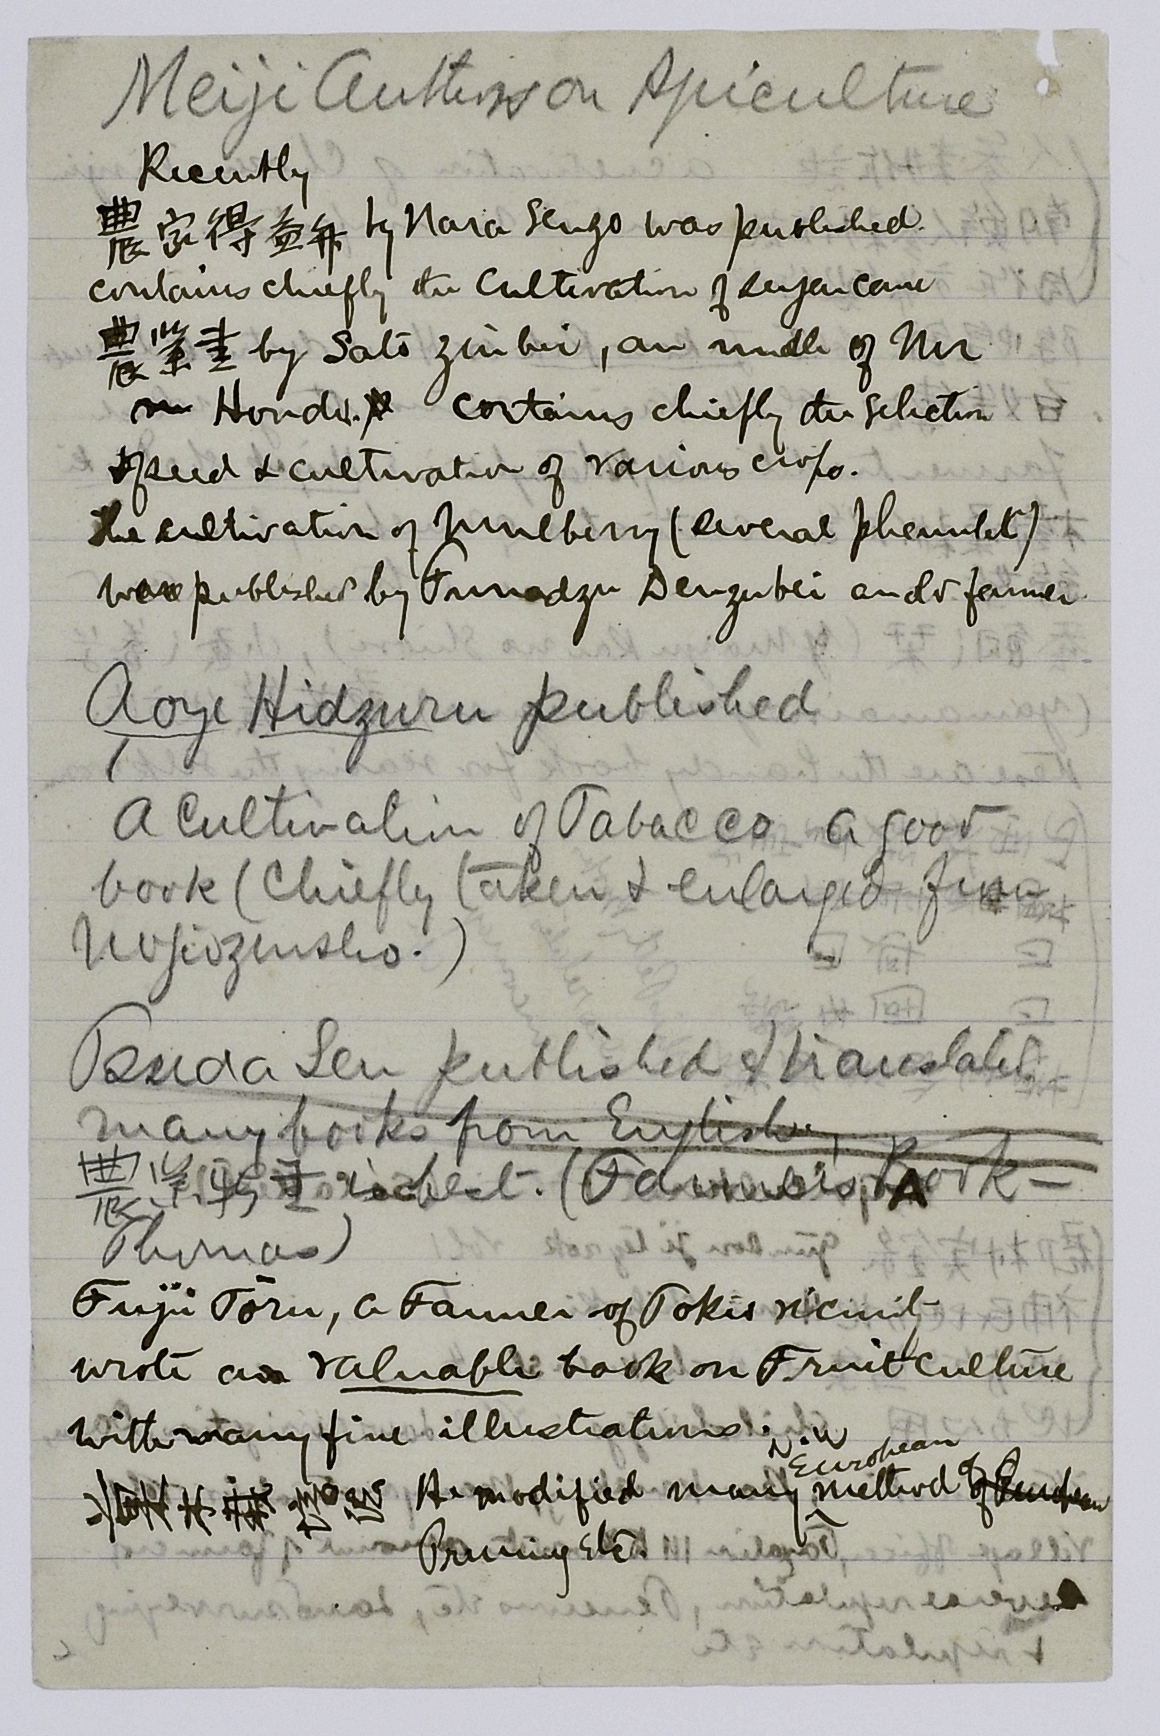 Meiji Authors on Apiculture
Recently
農家得益弁 by Nara Senzo was published.
contains chiefly the Cultivation of sugar cane
農業 by Sato Zinbei, an uncle of Mr
Honda. contains chiefly the Selection
of seed & cultivation of various crops.
The cultivation of Mulberry (several
were published by Funadzu Denzubei an old farmer
Aoye Hidzuru published
A Cultivation of Tabacco a good
book (Chiefly taken & enlarged from
Nogiozensho.)
Tsuda Sen published & translated
many books from English,
農業 is best. (Farmer's Book —
Thomas)
Fujii Tōru, a Farmer of Tokio vicinity
wrote a valuable book on Fruit culture
with many fine illustrations.
He modified many European method of
Pruning etc.